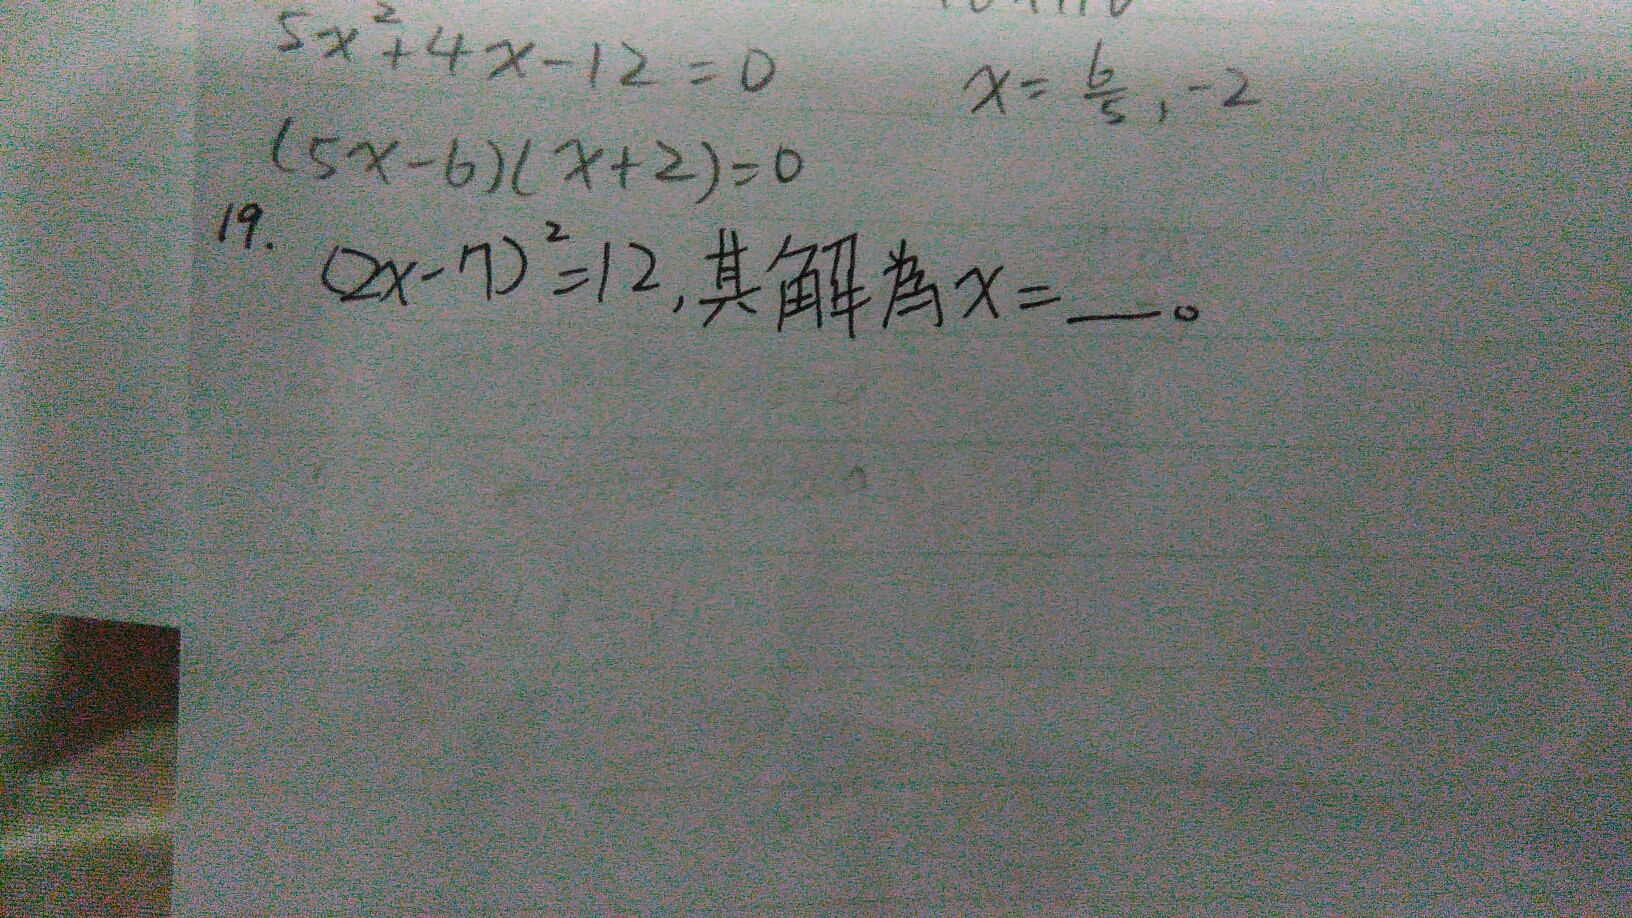 5x²+4x-12=0
x=6/5,-2
(5x-6)(x+2)=0
19.
(2x-7)²=12,其解為x=__。